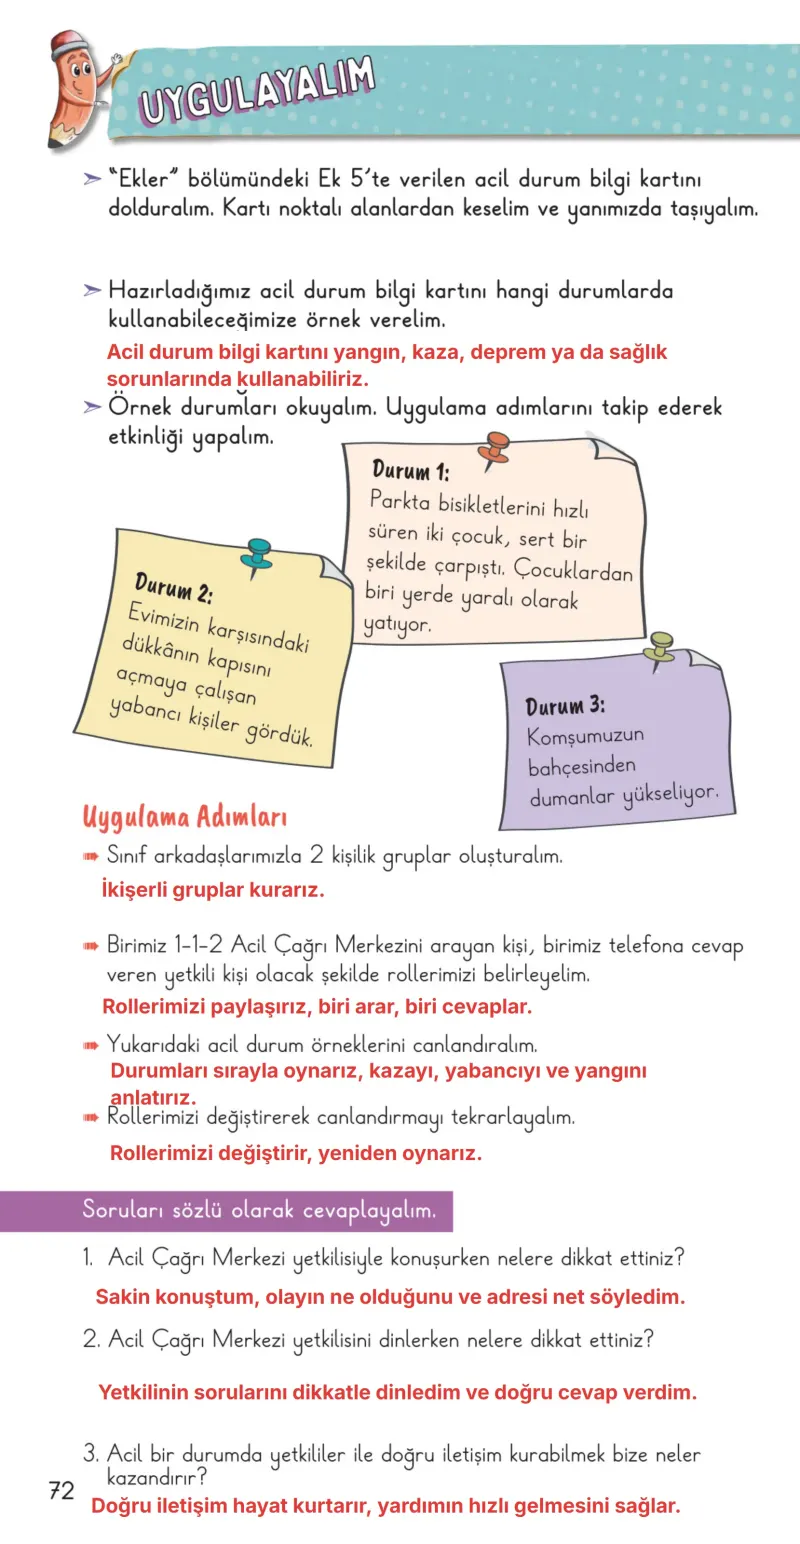 UYGULAYALIM
➣ “Ekler” bölümündeki Ek 5’te verilen acil durum bilgi kartını
dolduralım. Kartı noktalı alanlardan keselim ve yanımızda taşıyalım.
➣ Hazırladığımız acil durum bilgi kartını hangi durumlarda
kullanabileceğimize örnek verelim.
Acil durum bilgi kartını yangın, kaza, deprem ya da sağlık
sorunlarında kullanabiliriz.
➣ Örnek durumları okuyalım. Uygulama adımlarını takip ederek
etkinliği yapalım.
Durum 1:
Parkta bisikletlerini hızlı
süren iki çocuk, sert bir
şekilde çarpıştı. Çocuklardan
biri yerde yaralı olarak
yatıyor.
Durum 2:
Evimizin karşısındaki
dükkânın kapısını
açmaya çalışan
yabancı kişiler gördük.
Durum 3:
Komşumuzun
bahçesinden
dumanlar yükseliyor.
Uygulama Adımları
Sınıf arkadaşlarımızla 2 kişilik gruplar oluşturalım.
İkişerli gruplar kurarız.
Birimiz 1-1-2 Acil Çağrı Merkezini arayan kişi, birimiz telefona cevap
veren yetkili kişi olacak şekilde rollerimizi belirleyelim.
Rollerimizi paylaşırız, biri arar, biri cevaplar.
Yukarıdaki acil durum örneklerini canlandıralım.
Durumları sırayla oynarız, kazayı, yabancıyı ve yangını
anlatırız.
Rollerimizi değiştirerek canlandırmayı tekrarlayalım.
Rollerimizi değiştirir, yeniden oynarız.
Soruları sözlü olarak cevaplayalım.
1. Acil Çağrı Merkezi yetkilisiyle konuşurken nelere dikkat ettiniz?
Sakin konuştum, olayın ne olduğunu ve adresi net söyledim.
2. Acil Çağrı Merkezi yetkilisini dinlerken nelere dikkat ettiniz?
Yetkilinin sorularını dikkatle dinledim ve doğru cevap verdim.
3. Acil bir durumda yetkililer ile doğru iletişim kurabilmek bize neler
kazandırır?
72
Doğru iletişim hayat kurtarır, yardımın hızlı gelmesini sağlar.